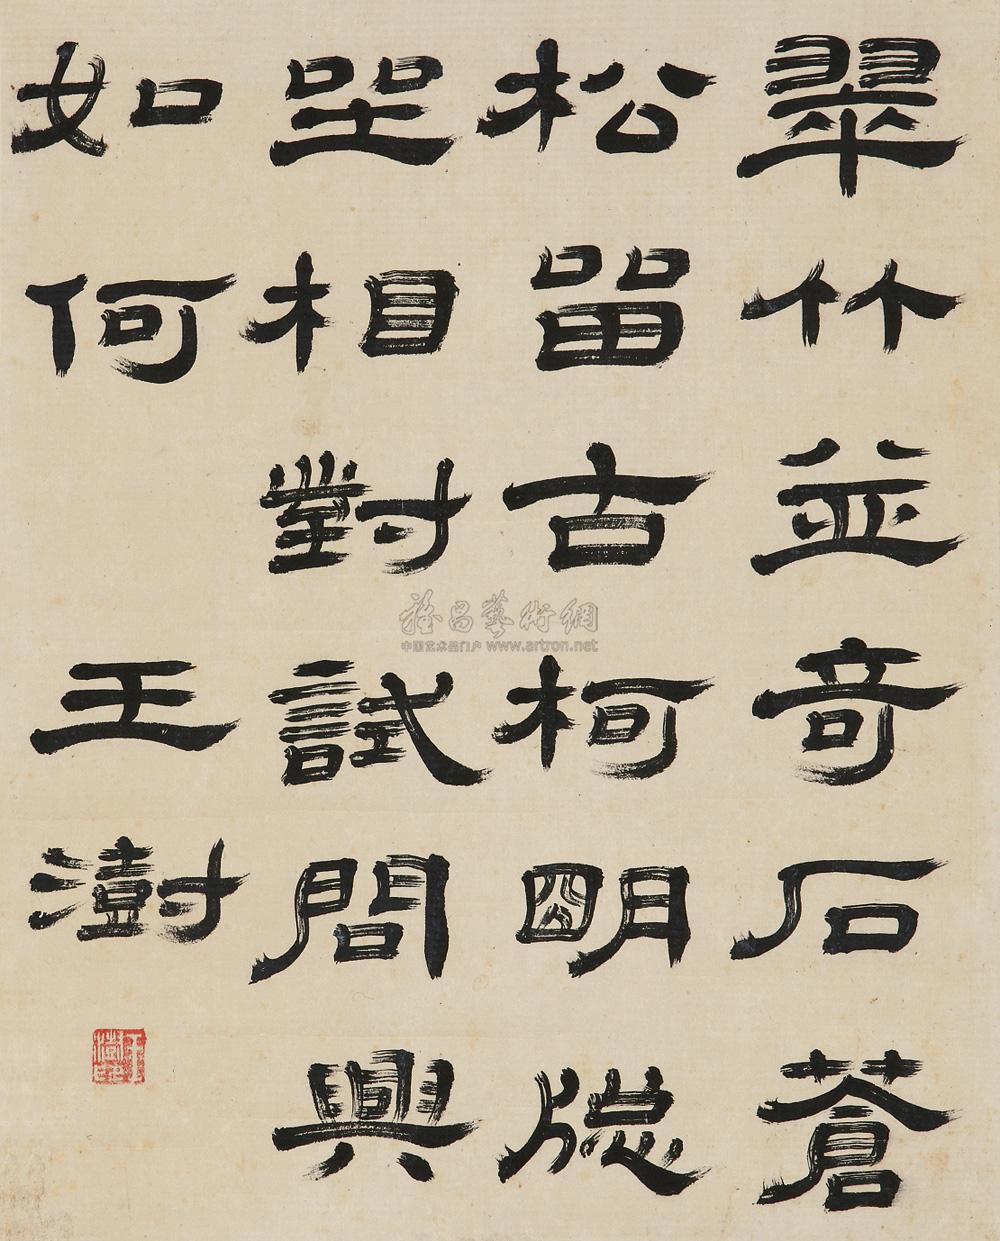 翠竹並奇石蒼
松留古柯明牕
坐相對試問興
如何
王澍
雅昌藝術網
中国艺术品门户 www.artron.net
王澍之印